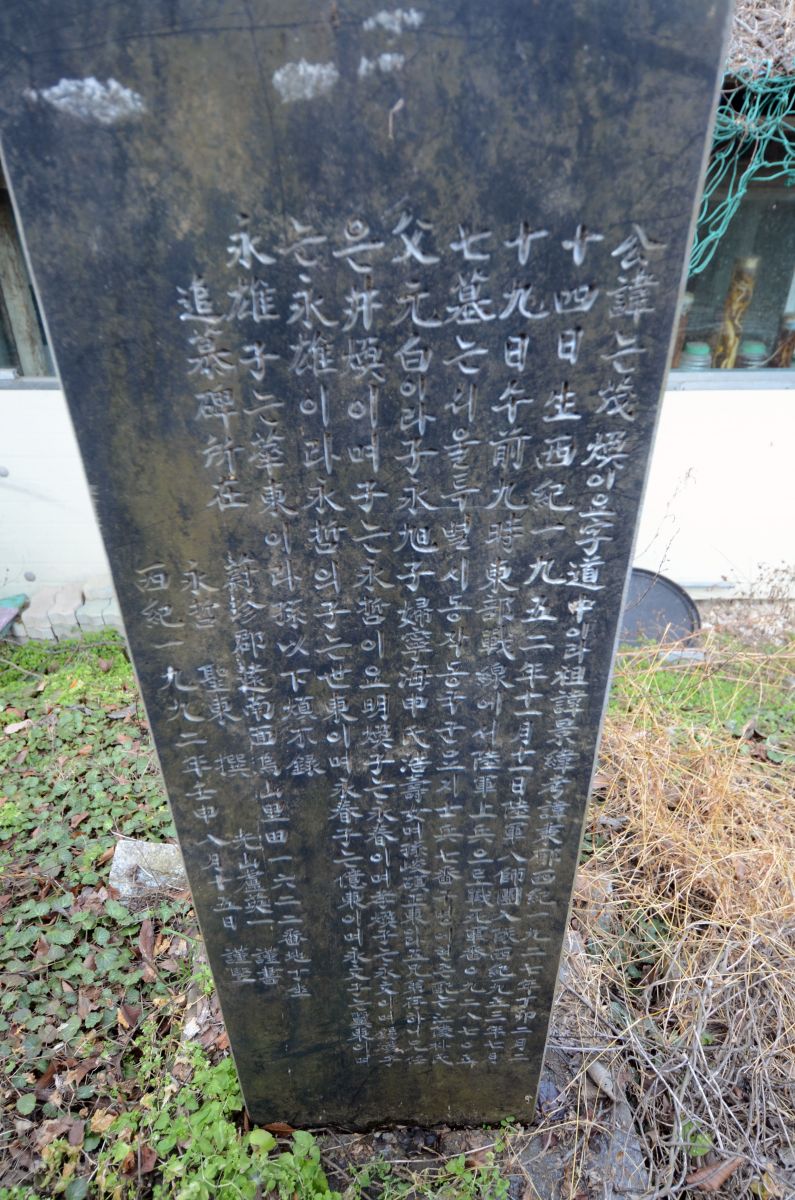 公諱는 茂煥이오字道中이라祖諱景緯考諱東耶西紀一九二七年丁卯二月二
十四日生西紀一九五二年十一月十一日陸軍八師團入隊西紀一九五三年七月
十九日午前九時東部戰線에서陸軍上兵으로戰死軍番〇九二八七〇五
七墓는서울특별시동작동국군묘지士兵七番
父元白이라子永旭子婦寧海申氏浩壽女며孫
은井煥이며子는永哲이오明煥子는永春이며
는永雄이라永哲의子는世東이며永春子는億東이며永文子는
永雄子는華東이라孫以下煩不錄
追慕碑所在 蔚珍郡遠南面烏山里田一六二二番地
永哲 聖東 撰 光山盧 謹書
西紀一九九二年壬申八月十五日 謹竪